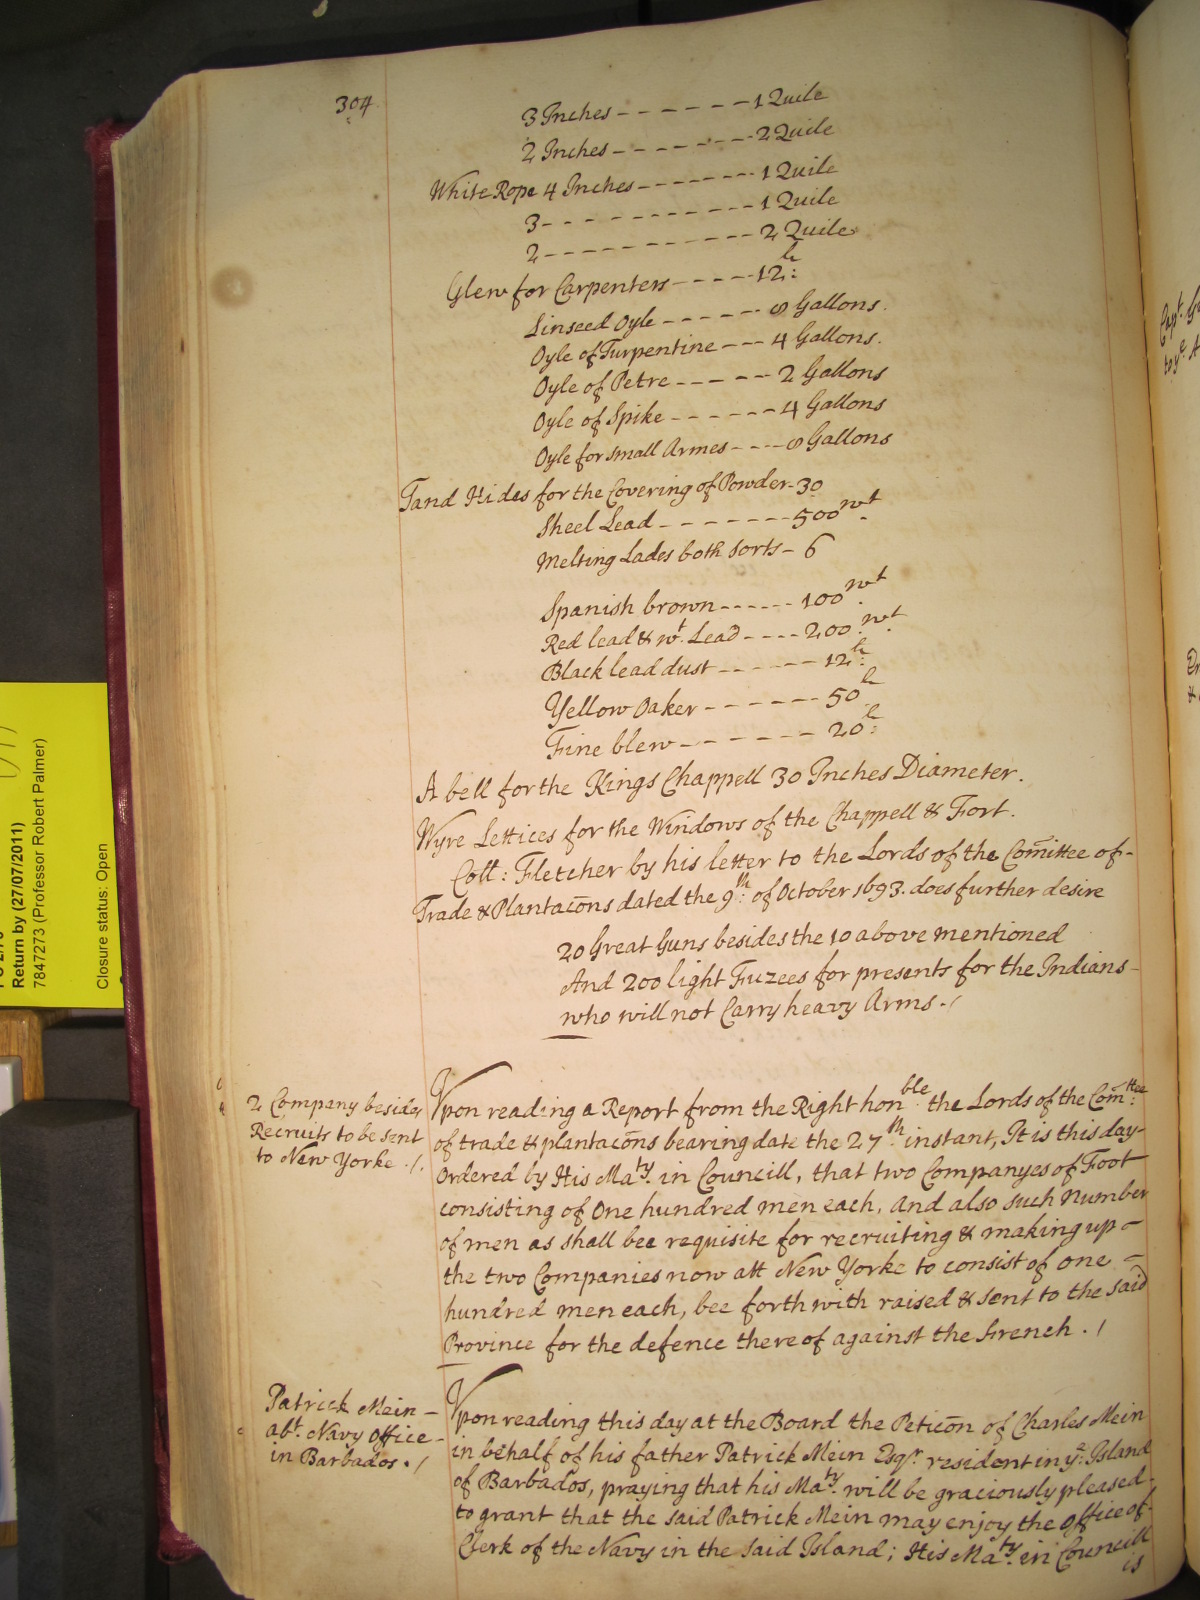 304
3 Inches - - - - - - - 1 Quile
2 Inches - - - - - - - 2 Quile
White Rope 4 Inches - - - - - - - 1 Quile
3 - - - - - - - - - - - 1 Quile
2 - - - - - - - - - - - 2 Quile
Glew for Carpenters - - - - - 12 l:
Linseed Oyle - - - - - - 8 Gallons.
Oyle of Turpentine - - - 4 Gallons.
Oyle of Petre - - - - - 2 Gallons
Oyle of Spike - - - - - - 4 Gallons
Oyle for small Armes - - - - 8 Gallons
Tand Hides for the Covering of Powder - 30
Sheel Lead - - - - - - - 500 wt.
Melting Lades both sorts - 6
Spanish brown - - - - - - 100 wt.
Red lead & wt. Lead - - - - 200 wt.
Black lead dust - - - - - - 12 l:
Yellow Oaker - - - - - - 50 l
Fine blew - - - - - - - 20 l:
A bell for the Kings Chappell 30 Inches Diameter.
Wyre Lettices for the Windows of the Chappell & Fort.
Coll: Fletcher by his letter to the Lords of the Comittee of -
Trade & Plantacõns dated the 9th: of October 1693. does further desire
20 Great Guns besides the 10 above mentioned
And 200 light Fuzees for presents for the Indians -
who will not Carry heavy Arms. /
2 Company besides
Recruits to be sent
to New Yorke ./.
Vpon reading a Report from the Right honble. the Lords of the Comttee:
of trade & plantacõns bearing date the 27th: instant, It is this day -
Ordered by His Maty. in Councill, that two Companyes of Foot
consisting of One hundred men each, and also such Number
of men as shall bee requisite for recruiting & making up -
the two Companies now att New Yorke to consist of one -
hundred men each, bee forthwith raised & sent to the said
Province for the defence thereof against the French. /
Patrick Mein -
abt. Navy Office -
in Barbados. /
Vpon reading this day at the Board the Peticõn of Charles Mein
in behalf of his father Patrick Mein Esqr. resident in ye. Island
of Barbados, praying that his Maty. will be graciously pleased -
to grant that the said Patrick Mein may enjoy the Office of -
Clerk of the Navy in the said Island; His Maty. in Councill
is
Return by (27/07/2011)
7847273 (Professor Robert Palmer)
Closure status: Open